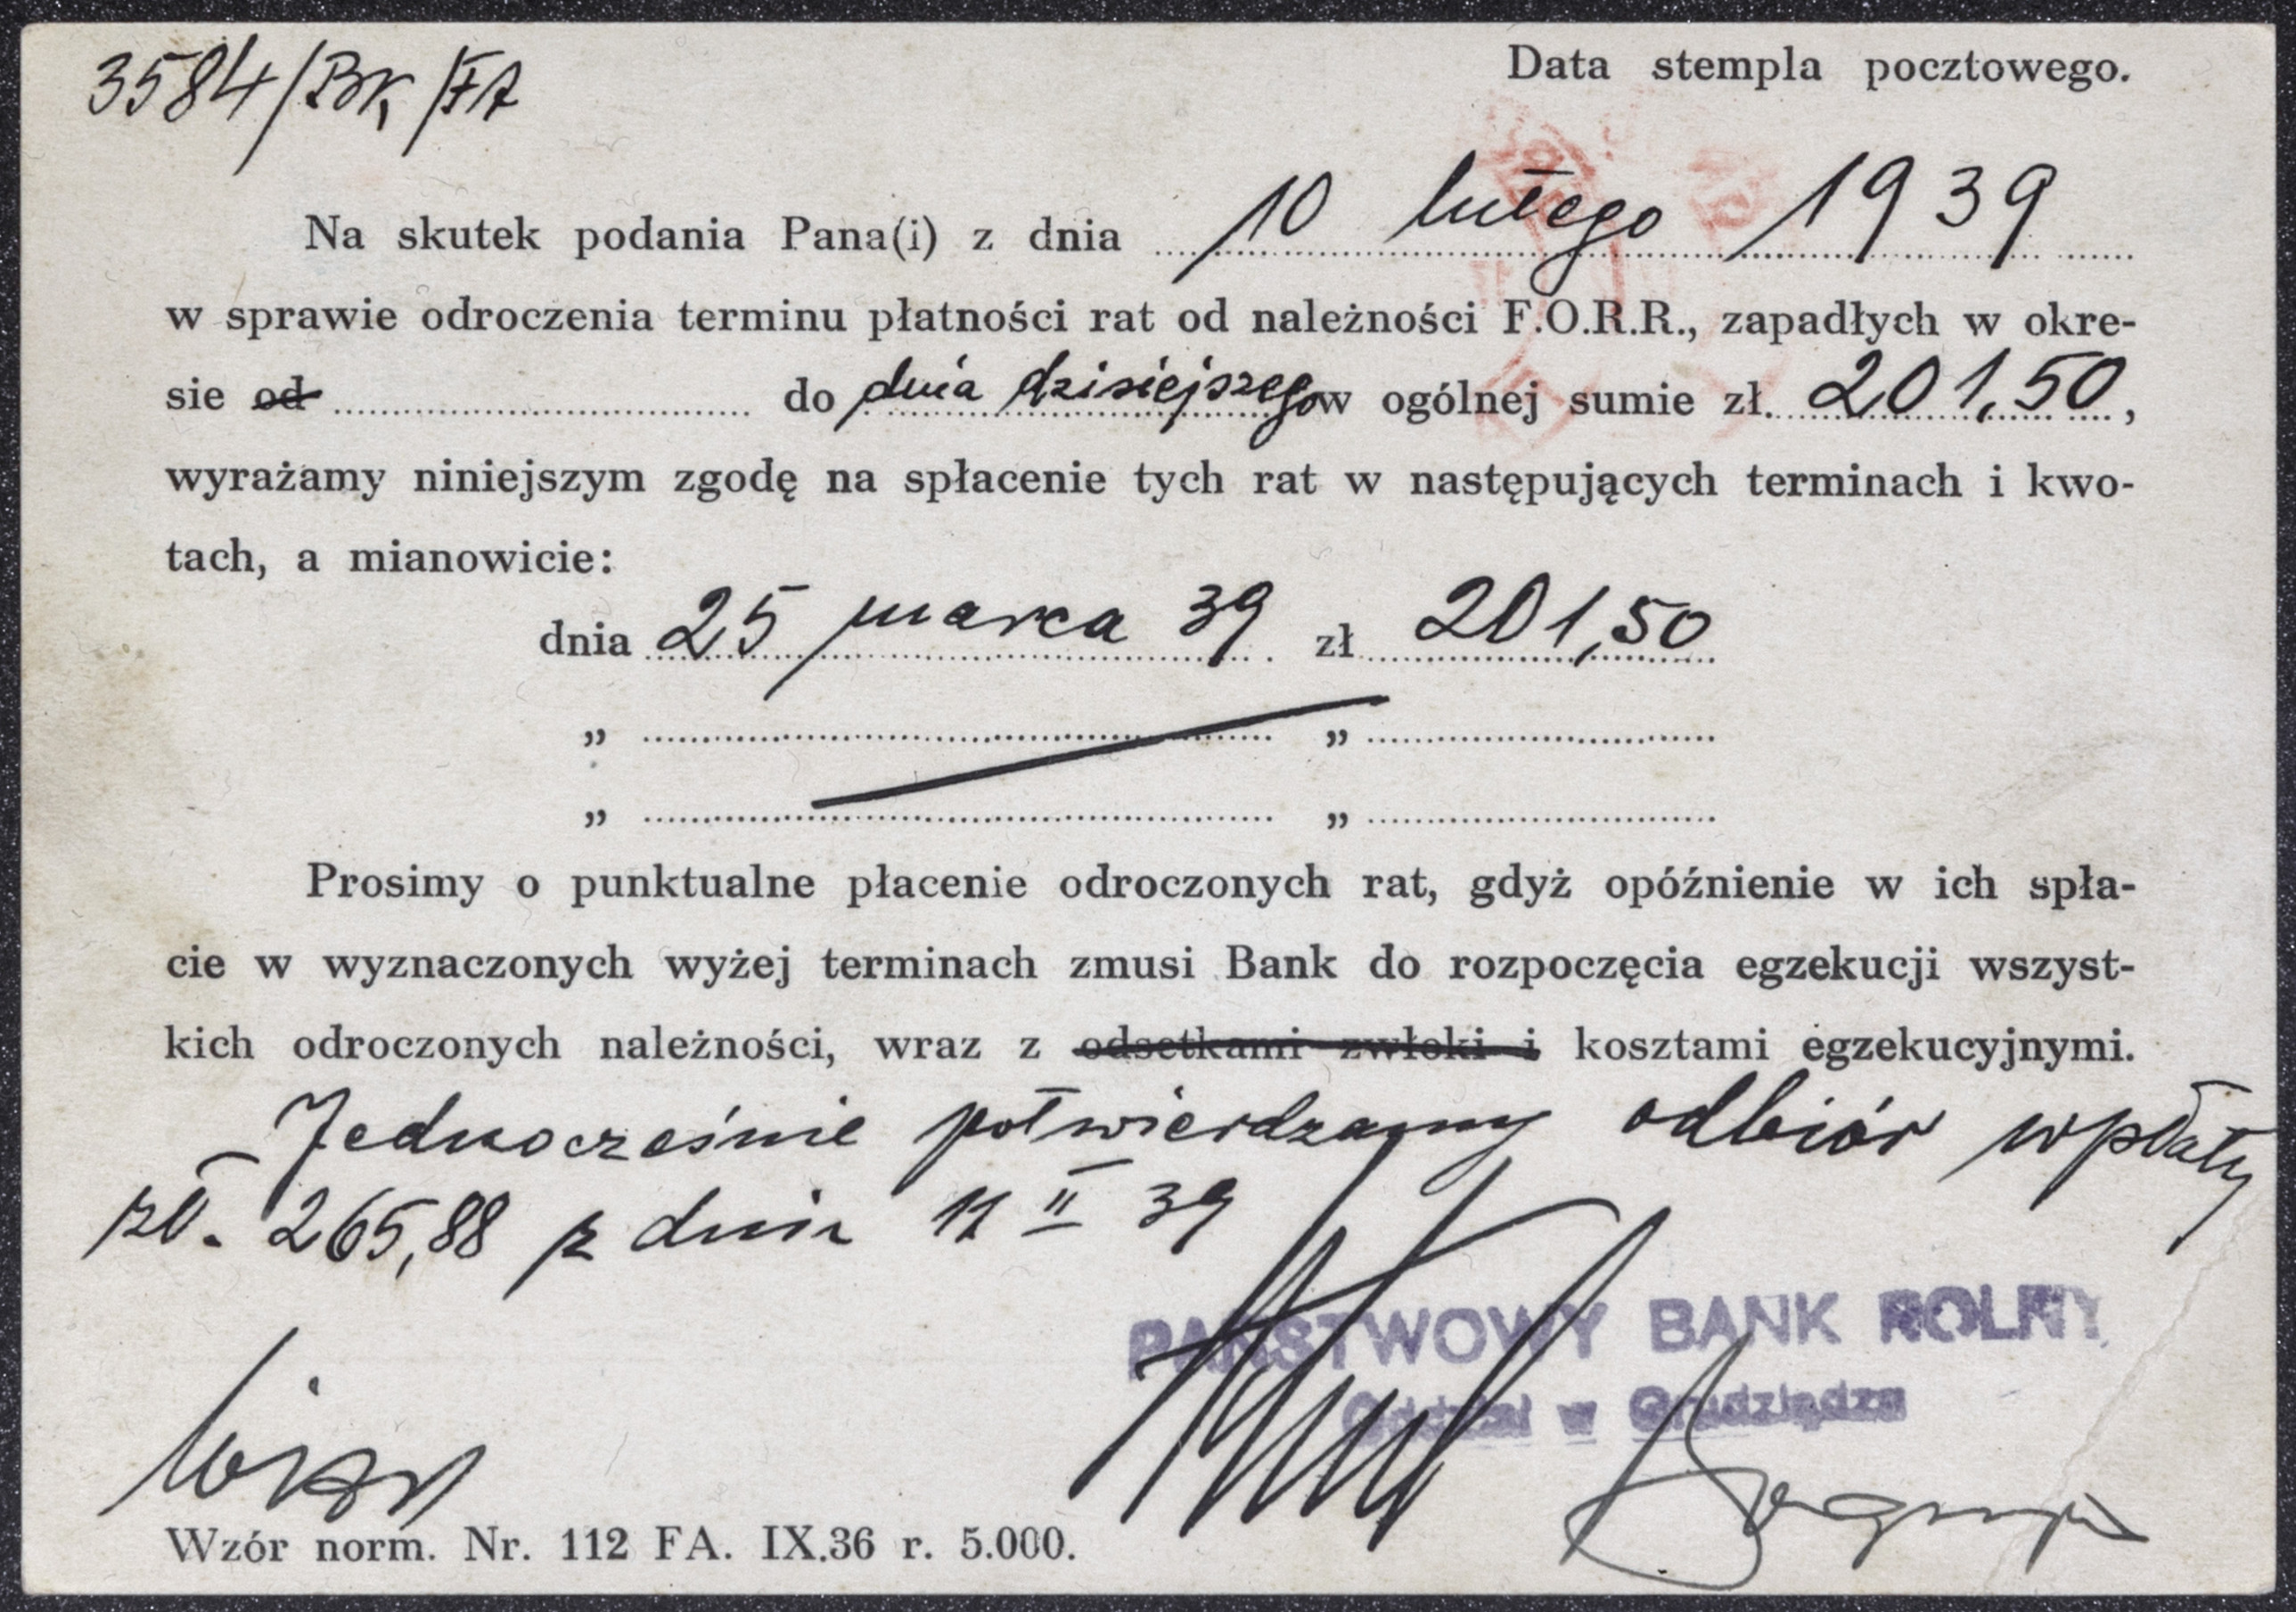 3584/BK/FA
Data stempla pocztowego.
Na skutek podania Pana(i) z dnia 10 lutego 1939
w sprawie odroczenia terminu płatności rat od należności F.O.R.R., zapadłych w okre-
sie od do dnia dzisiejszego w ogólnej sumie zł. 201,50,
wyrażamy niniejszym zgodę na spłacenie tych rat w następujących terminach i kwo-
tach, a mianowicie:
dnia 25 marca 39 zł 201,50
„ „
„ „
Prosimy o punktualne płacenie odroczonych rat, gdyż opóźnienie w ich spła-
cie w wyznaczonych wyżej terminach zmusi Bank do rozpoczęcia egzekucji wszyst-
kich odroczonych należności, wraz z odsetkami zwłoki i kosztami egzekucyjnymi.
Jednocześnie potwierdzamy odbiór wpłaty
zł. 265,88 z dnia 11 II 39
PAŃSTWOWY BANK ROLNY
Oddział w Grudziądzu
Wzór norm. Nr. 112 FA. IX.36 r. 5.000.